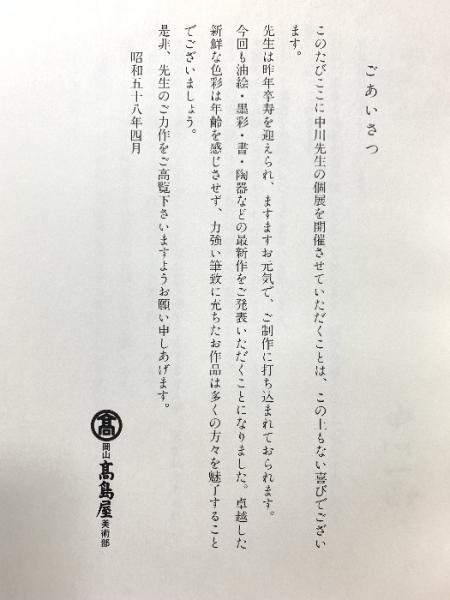 ごあいさつ
このたびここに中川先生の個展を開催させていただくことは、この上もない喜びでござい
ます。
先生は昨年卒寿を迎えられ、ますますお元気で、ご制作に打ち込まれておられます。
今回も油絵・墨彩・書・陶器などの最新作をご発表いただくことになりました。卓越した
新鮮な色彩は年齢を感じさせず、力強い筆致に充ちたお作品は多くの方々を魅了すること
でございましょう。
是非、先生のご力作をご高覧下さいますようお願い申しあげます。
昭和五十八年四月
髙
岡山
髙島屋
美術部